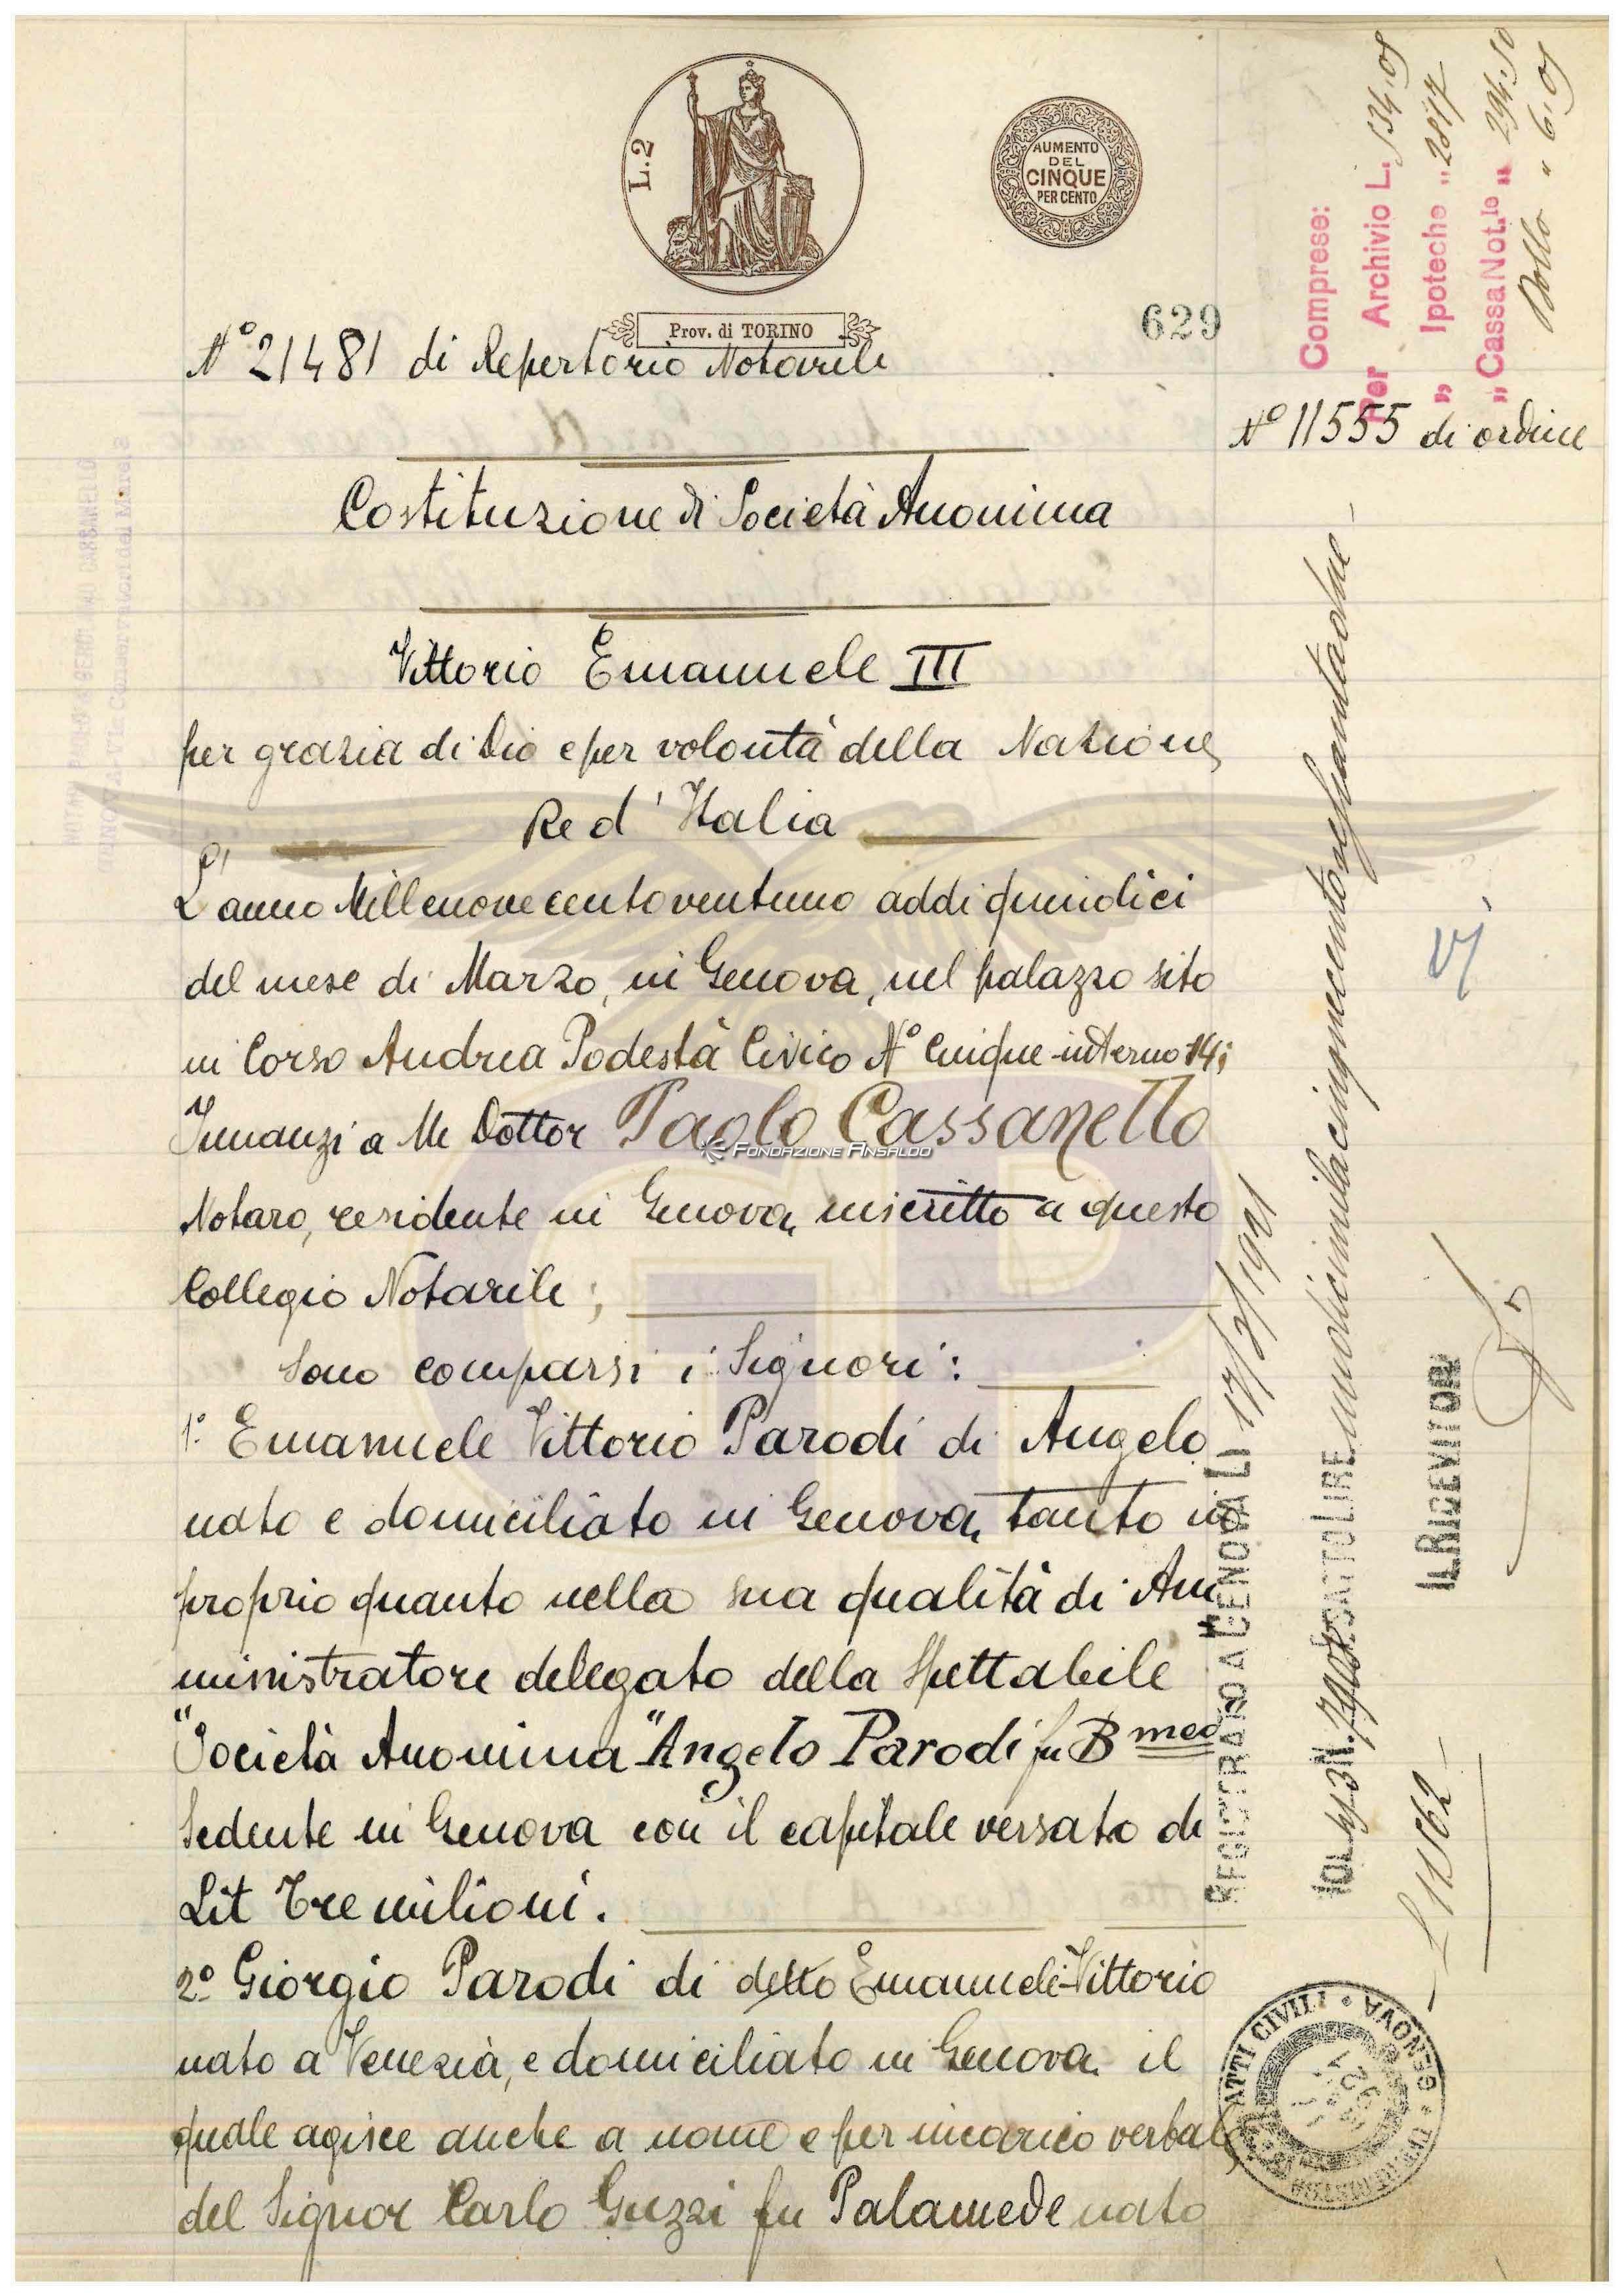 L.2
AUMENTO
DEL
CINQUE
PER CENTO
Prov. di TORINO
629
Comprese:
Per Archivio L. 134.05
" Ipoteche "
" Cassa Not.le " 294.50
Bollo " 6.05
N° 21481 di Repertorio Notarile
N° 11555 di ordine
Costituzione di Società Anonima
Vittorio Emanuele III
per grazia di Dio e per volontà della Nazione
Re d'Italia
L'anno Millenovecentoventuno addi quindici
del mese di Marzo, in Genova, nel palazzo sito
in Corso Andrea Podestà Civico N° Cinque interno 14;
Innanzi a Me Dottor Paolo Cassanello
FONDAZIONE ANSALDO
Notaro, residente in Genova, inscritto a questo
Collegio Notarile;
Sono comparsi i Signori:
1° Emanuele Vittorio Parodi di Angelo
nato e domiciliato in Genova, tanto in
proprio quanto nella sua qualità di Am
ministratore delegato della Spettabile
"Società Anonima "Angelo Parodi fu Bmeo
Sedente in Genova con il capitale versato di
Lit Tre milioni.
2° Giorgio Parodi di detto Emanuele Vittorio
nato a Venezia, e domiciliato in Genova il
quale agisce anche a nome e per incarico verbale
del Signor Carlo Guzzi fu Palamede nato
REGISTRATO A GENOVA LI 17/3/1921
ESATTO LIRE undicimilacinquecentosessantadue
IL RICEVITORE
L 11562
ATTI CIVILI • GENOVA